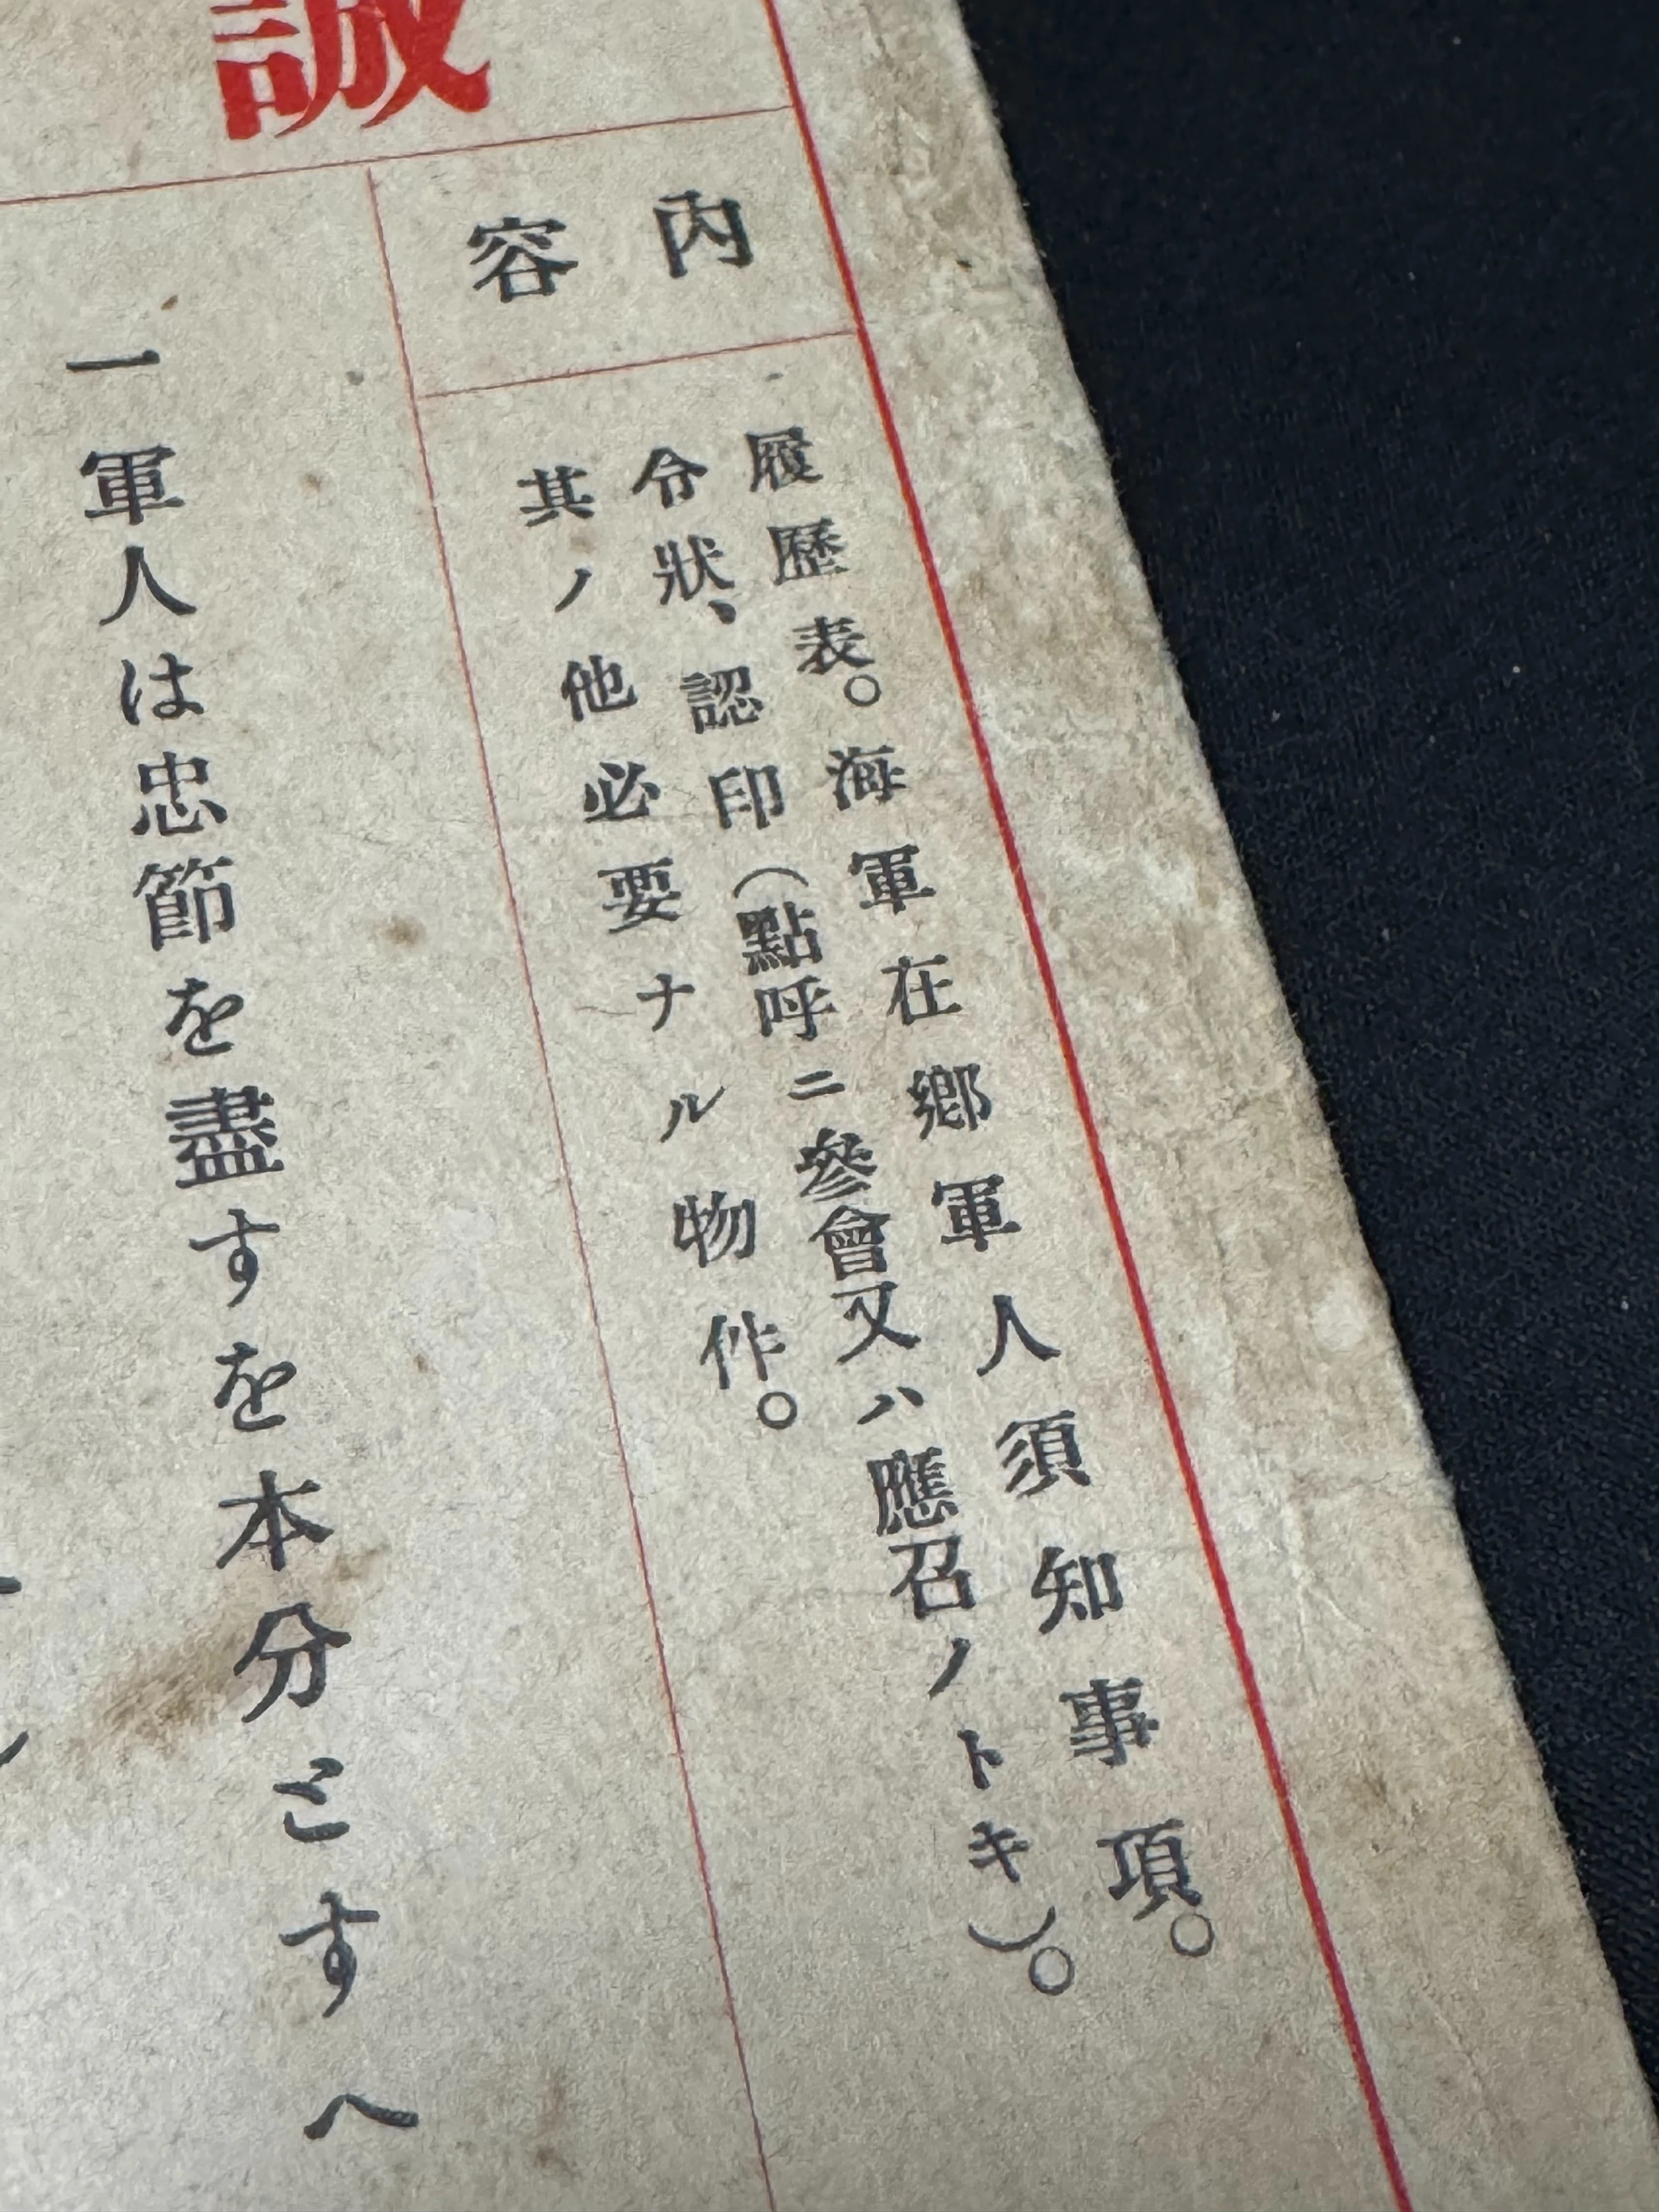 誠
內容
履歷表。海軍在鄕軍人須知事項。
令狀、認印(點呼ニ參會又ハ應召ノトキ)。
其ノ他必要ナル物件。
一軍人は忠節を盡すを本分とすへ